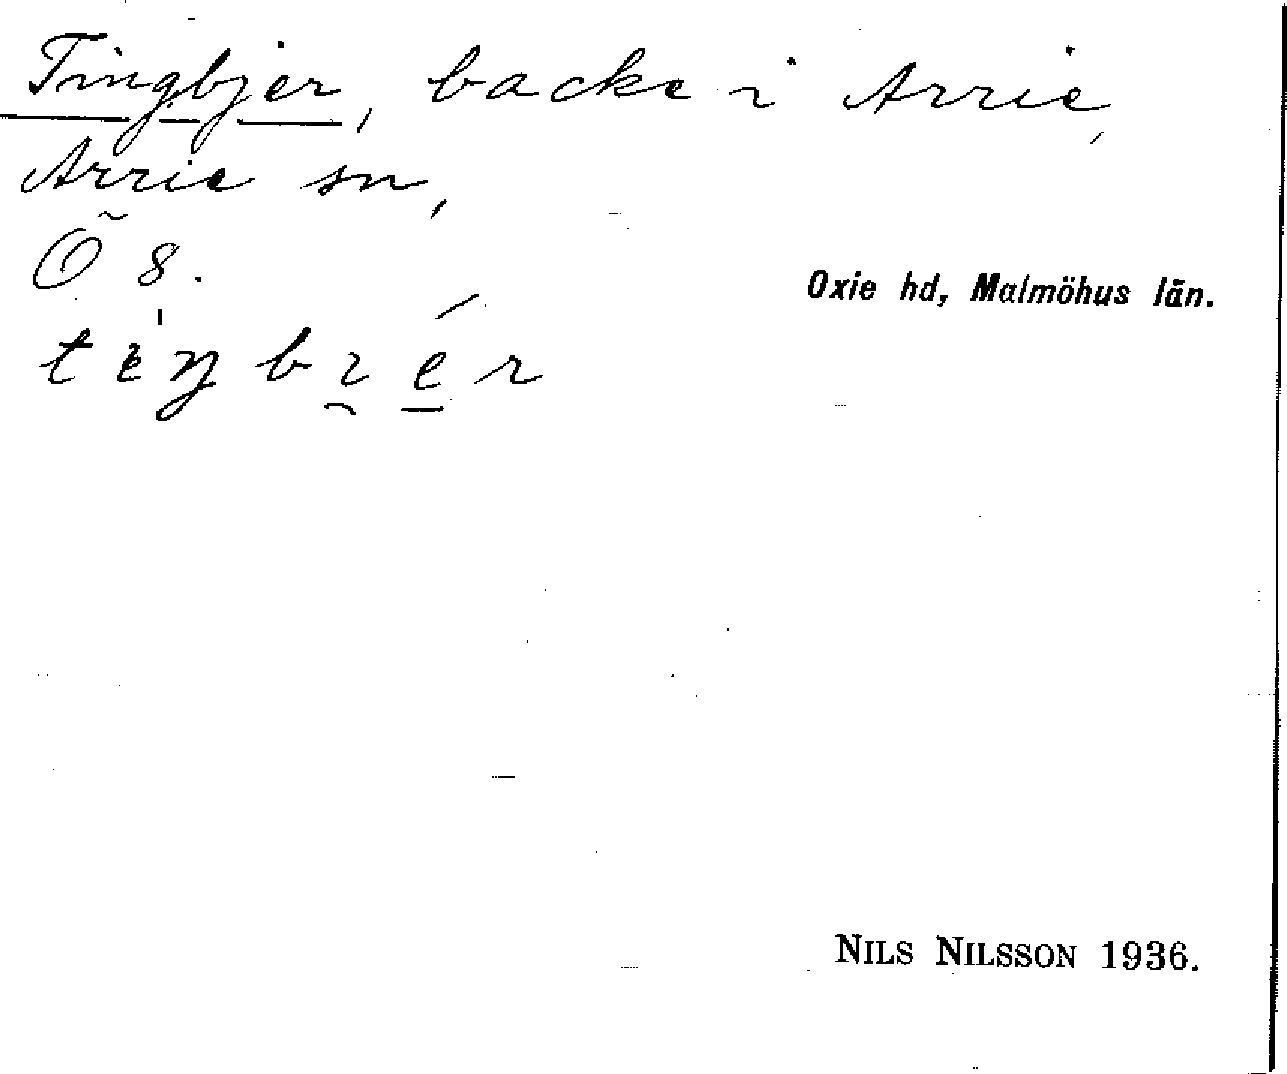 Tingbjer, backe i Arrie,
Arrie sn,
Õ 8.
Oxie hd, Malmöhus län.
NILS NILSSON 1936.